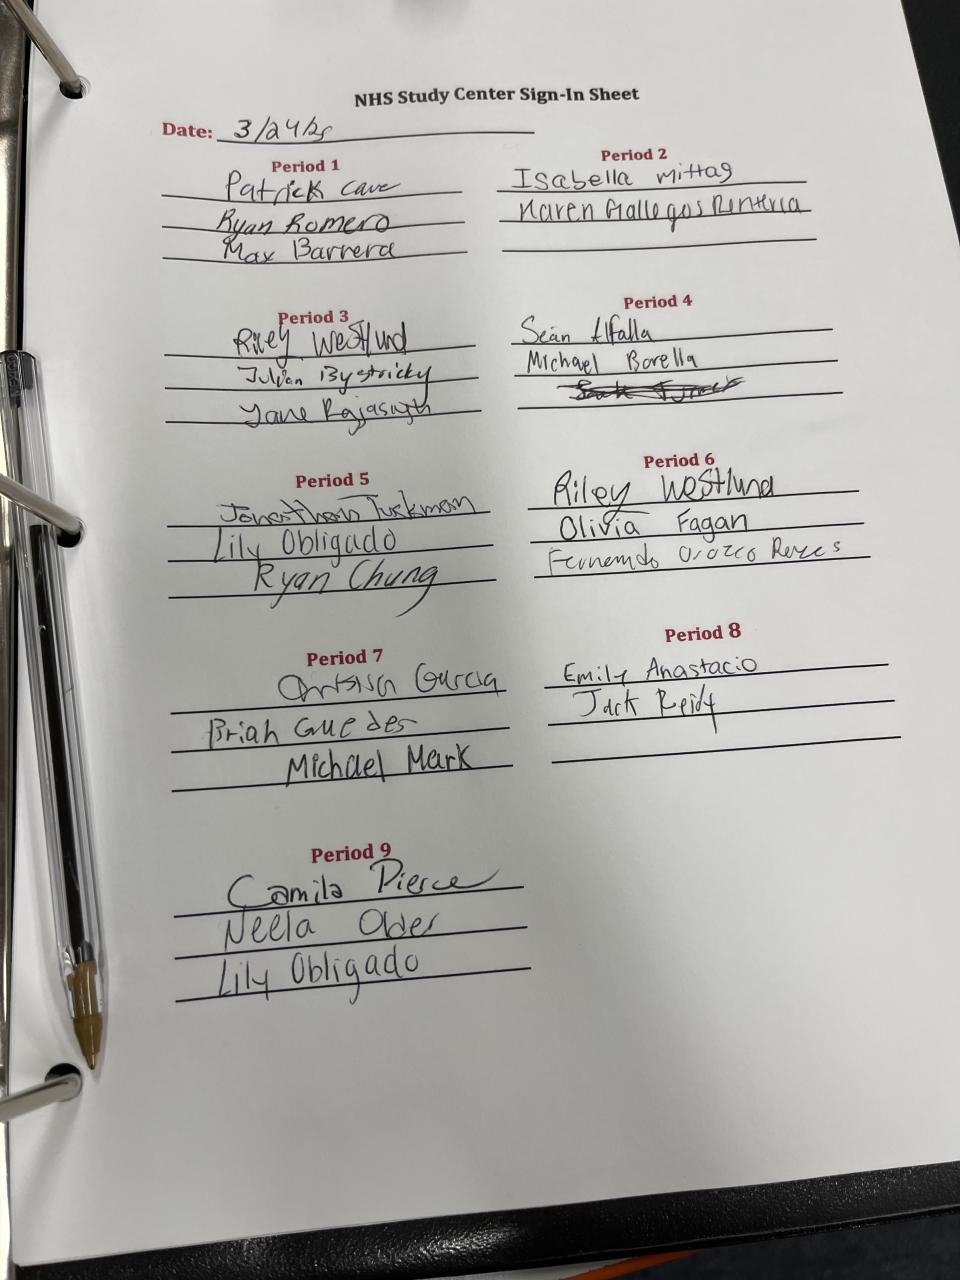 NHS Study Center Sign-In Sheet
Date: 3/24/25
Period 1
Patrick Cave
Ryan Romero
Max Barrera
Period 2
Isabella Mittag
Karen Gallegos Renteria
Period 3
Riley Westlund
Julian Bystricky
Period 4
Sean Alfalla
Michael Borella
Period 5
Jonathan Tuckman
Lily Obligado
Ryan Chung
Period 6
Riley Westlund
Olivia Fagan
Fernando Orozco Reyes
Period 7
Garcia
Briah Guedes
Michael Mark
Period 8
Emily Anastacio
Jack Reidy
Period 9
Camila Pierce
Neela Older
Lily Obligado